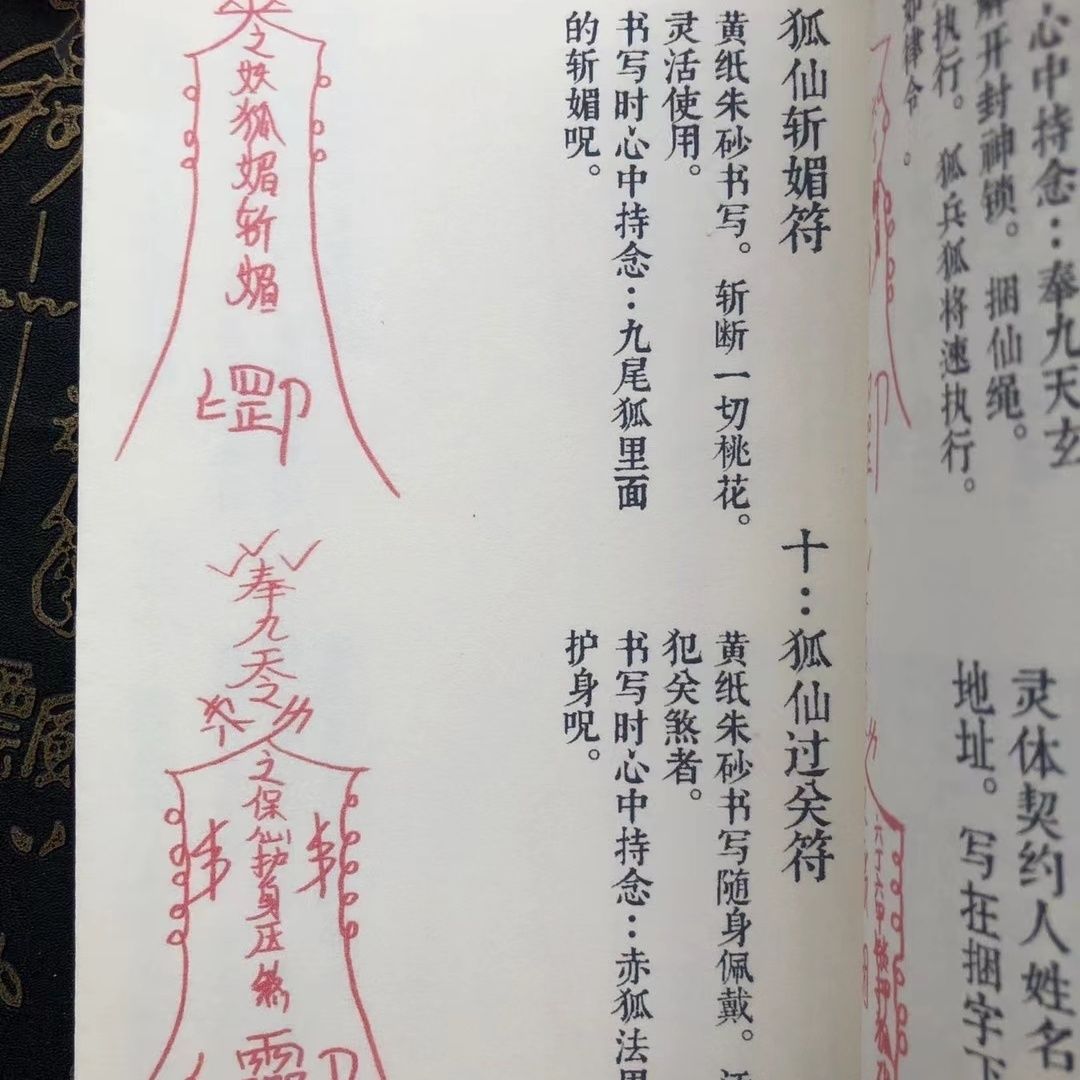 心中持念：奉九天玄
解开封神锁。捆仙绳。
执行。狐兵狐将速执行。
如律令。
灵体契约人姓名
地址。写在捆字下
狐仙斩媚符
黄纸朱砂书写。斩断一切桃花。
灵活使用。
书写时心中持念：九尾狐里面
的斩媚呪。
之妖狐媚斩媚
十：狐仙过关符
黄纸朱砂书写随身佩戴。
犯关煞者。
书写时心中持念：赤狐法里
护身呪。
奉九天
之保仙护身压煞
六丁六甲